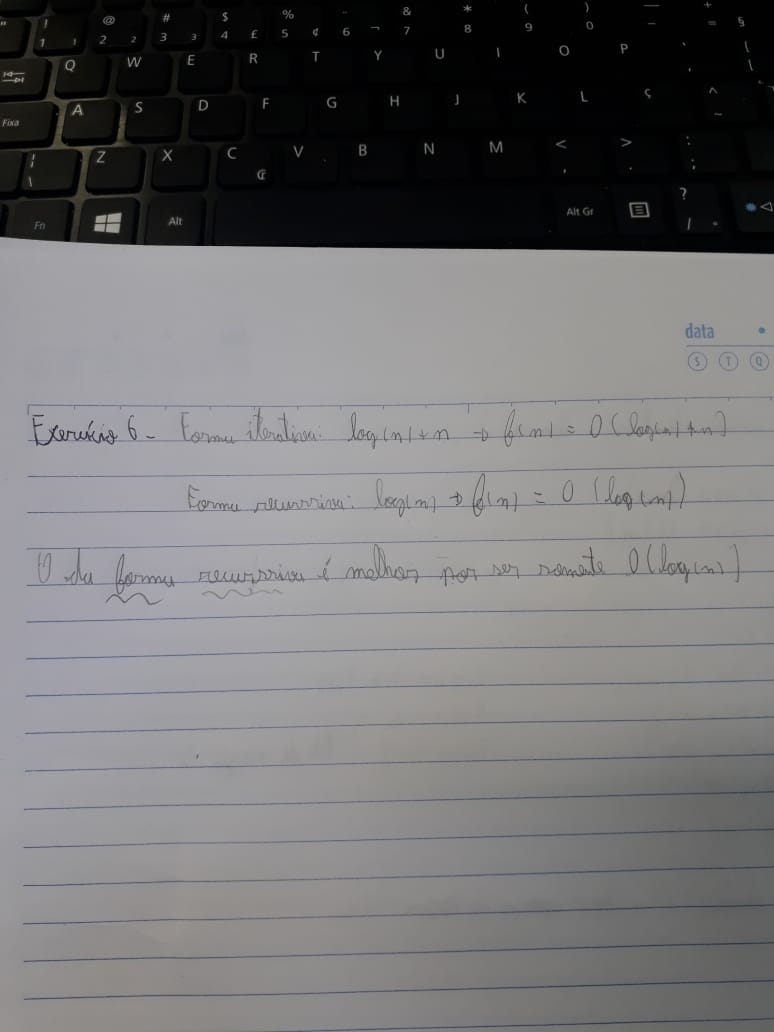 ! 1 1 @ 2 2 # 3 3 $ 4 £ % 5 ¢ ¨ 6 ¬ & 7 * 8 ( 9 ) 0 — – + = §
Q W E R T Y U I O P
Fixa A S D F G H J K L Ç ^ ~
¦ \ Z X C ₢ V B N M < , > . : ;
Fn Alt Alt Gr ? / °
data
S T Q
Exercício 6 - Forma iterativa: log(n)+n → f(n) = O(log(n)+n)
Forma recurrsiva: log(n) → f(n) = O (log(n))
O da forma recurrsiva é melhor por ser somente O(log(n))